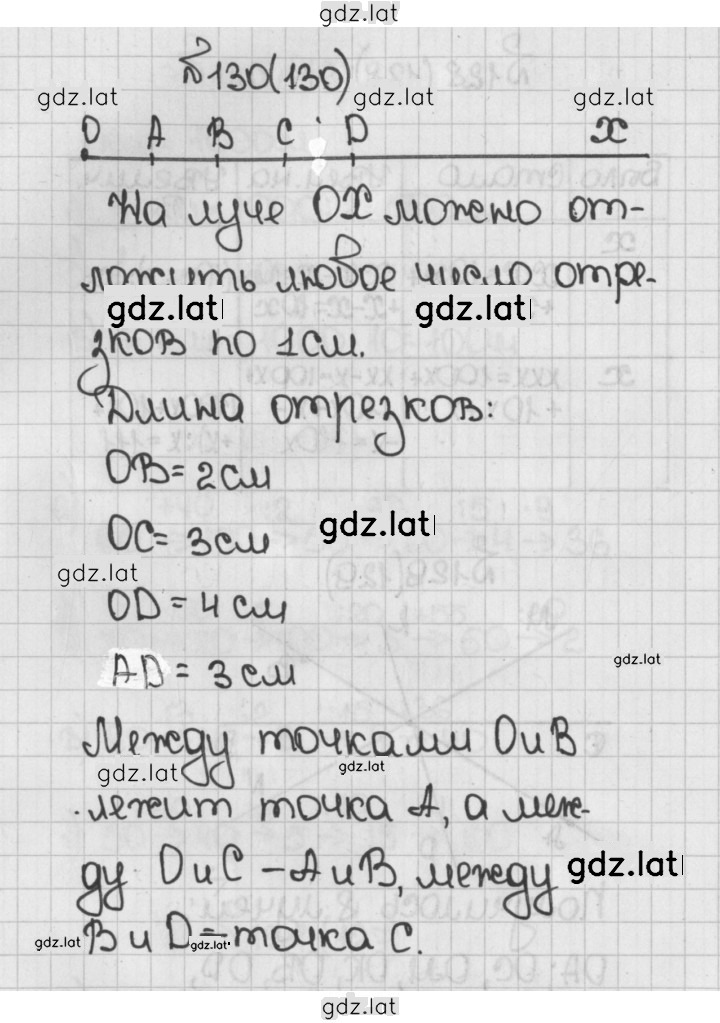 gdz.lat
№130(130)
gdz.lat gdz.lat gdz.lat
O A B C D X
На луче OX можно от-
ложить любое число отре-
gdz.lat gdz.lat
зков по 1 см.
Длина отрезков:
OB = 2 см
OC = 3 см gdz.lat
gdz.lat
OD = 4 см
gdz.lat
AD = 3 см
Между точками O и B
gdz.lat gdz.lat
лежит точка A, а меж-
ду O и C – A и B, между gdz.lat
gdz.lat B и D – точка C.
gdz.lat
gdz.lat